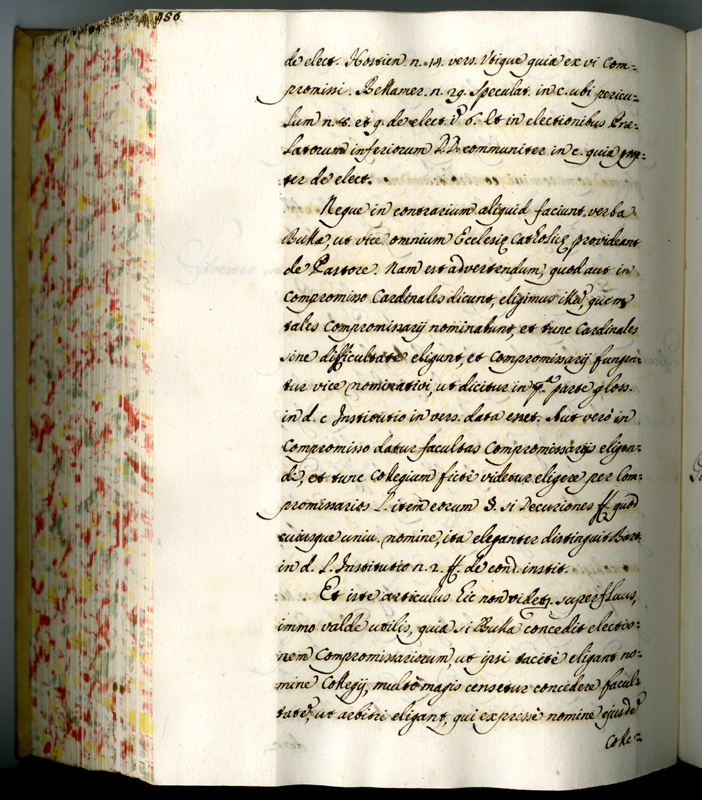 956
de elect. Hostien. n. 14. vers. Utique quia ex vi Com=
promissi. Bellamer. n. 29. Speculat. in c. ubi pericu=
lum n. 8. et 9. de elect. i.º 6. Et in electionibus Prę=
latorum inferiorum DD. communiter in c. quia prop=
ter de elect.
Neque in contrarium aliquid faciunt verba
Bullę, ut vice omnium Ecclesię Catholicę provideant
de Pastore. Nam est advertendum, quod aut in
compromisso Cardinales dicunt, eligimus illũ, quem
tales Compromissarij nominabunt, et tunc Cardinales
sine difficultate eligunt, et Compromissarij fungen=
tur vice nominativi, ut dicitur in p.ª parte gloss.
in d. c Institutio in vers. data esset. Aut verò in
Compromisso datur facultas Compromissarijs eligen=
di, et tunc Collegium fictè videtur eligere per Com=
promissarios L. item eorum §. si Decuriones ff. quod
cuiusque univ. nomine, ita eleganter distinguit Bart.
in d. L. Institutio n. 2. ff. de cond. instit.
Et iste articulus hic non videtr. superfluus,
immo valde utilis, quia si Bulla concedit electio=
nem Compromissariorum, ut ipsi tacitè eligant no=
mine Collegij, multò magis censetur concedere facul=
tatẽ, ut arbitri eligant, qui expressè nomine ejusdẽ
Colle=